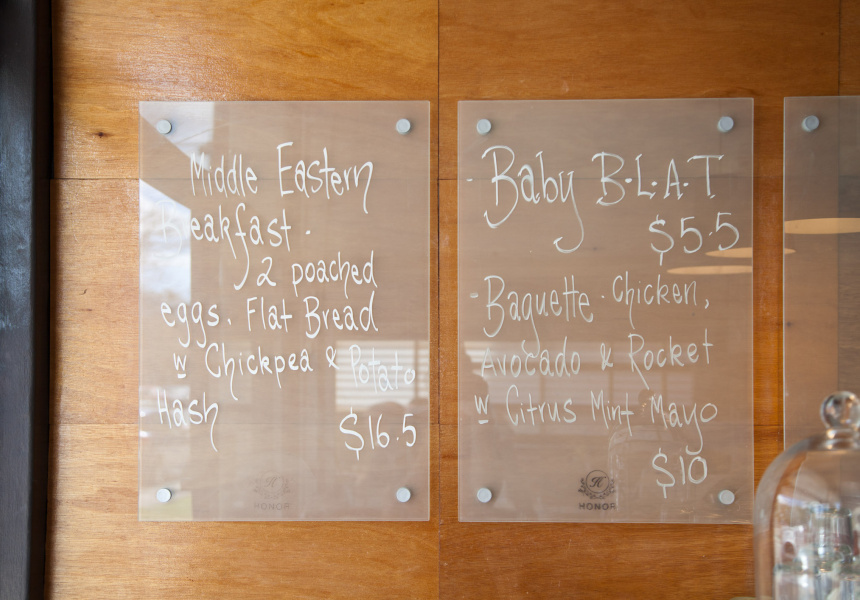 Middle Eastern
Breakfast.
2 poached
eggs. Flat Bread
w Chickpea & Potato
Hash
$16.5
HONOR
- Baby B.L.A.T
$5.5
- Baguette. Chicken,
Avocado & Rocket
w Citrus Mint Mayo
$10
H
HONOR